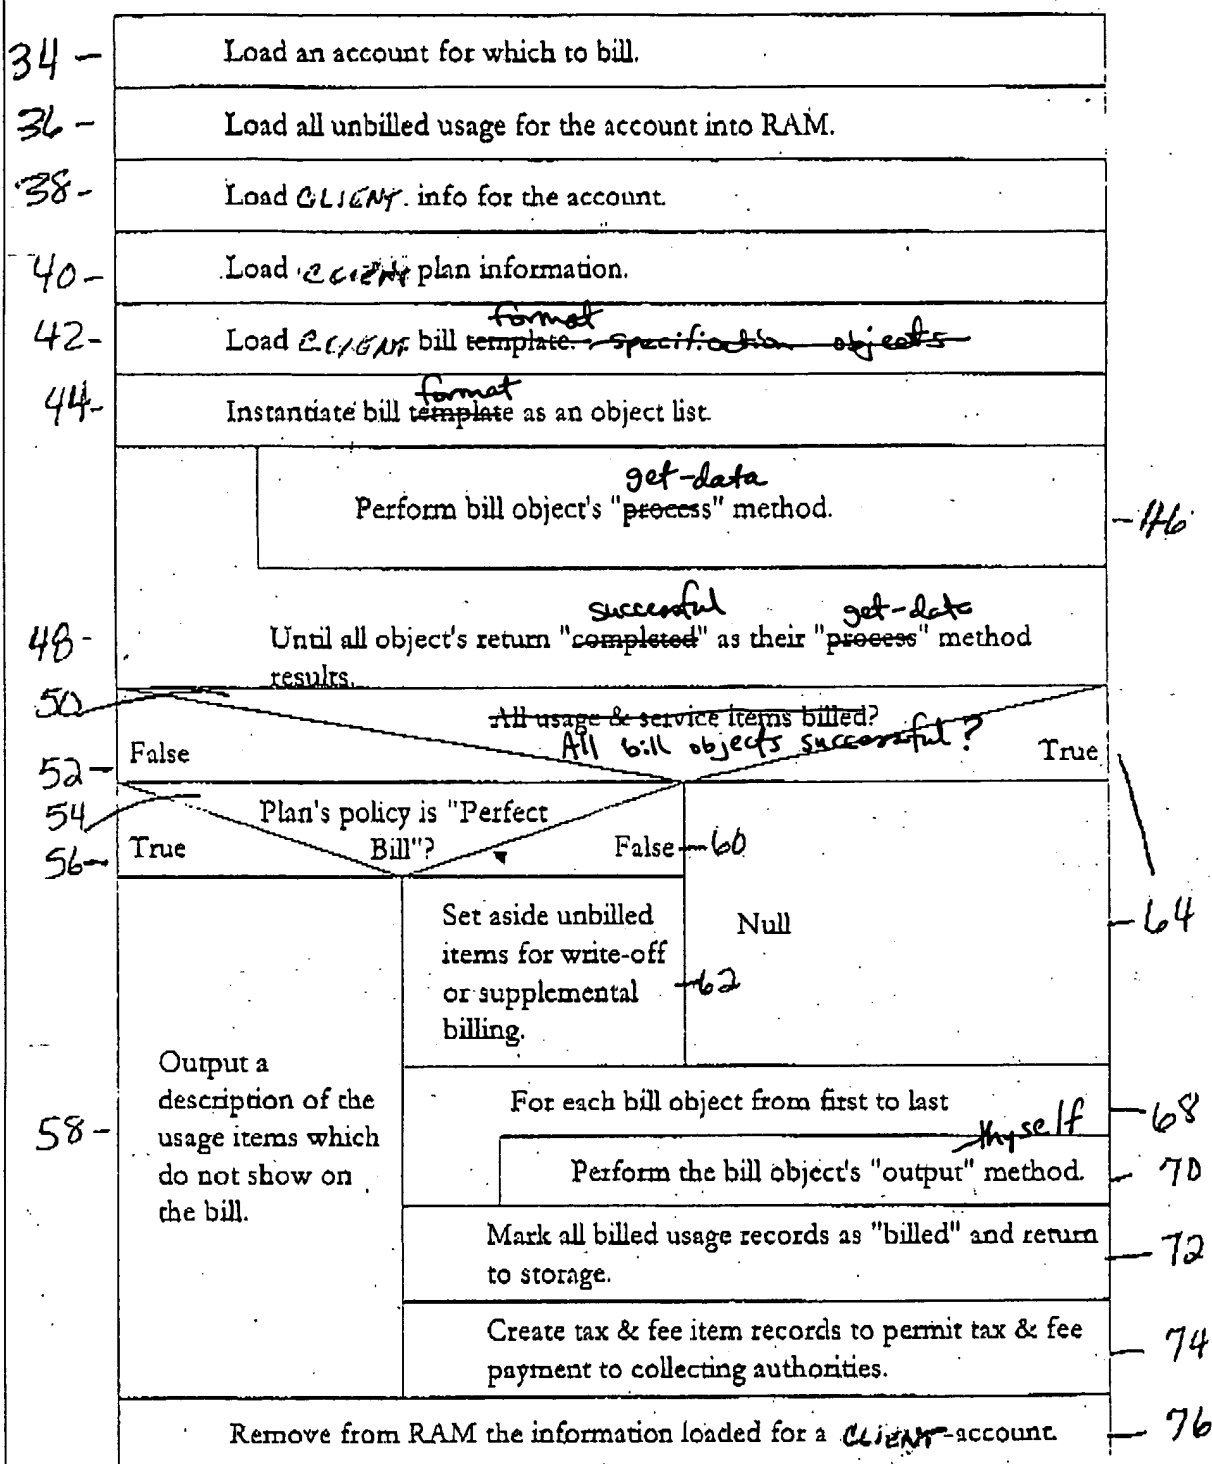 34 - Load an account for which to bill.
36 - Load all unbilled usage for the account into RAM.
38 - Load CLIENT. info for the account.
40 - Load CLIENT plan information.
format
42 - Load CLIENT bill template. specification objects
format
44 - Instantiate bill template as an object list.
get-data
Perform bill object's "process" method. - 46
successful get-data
48 - Until all object's return "completed" as their "process" method
results.
50
All usage & service items billed?
All bill objects successful?
52 - False True
54 Plan's policy is "Perfect
Bill"?
56 - True False - 60
Set aside unbilled
items for write-off
or supplemental
billing.
- 62
Null - 64
Output a
description of the
58 - usage items which
do not show on
the bill.
For each bill object from first to last - 68
thyself
Perform the bill object's "output" method. - 70
Mark all billed usage records as "billed" and return
to storage. - 72
Create tax & fee item records to permit tax & fee
payment to collecting authorities. - 74
Remove from RAM the information loaded for a CLIENT-account. - 76